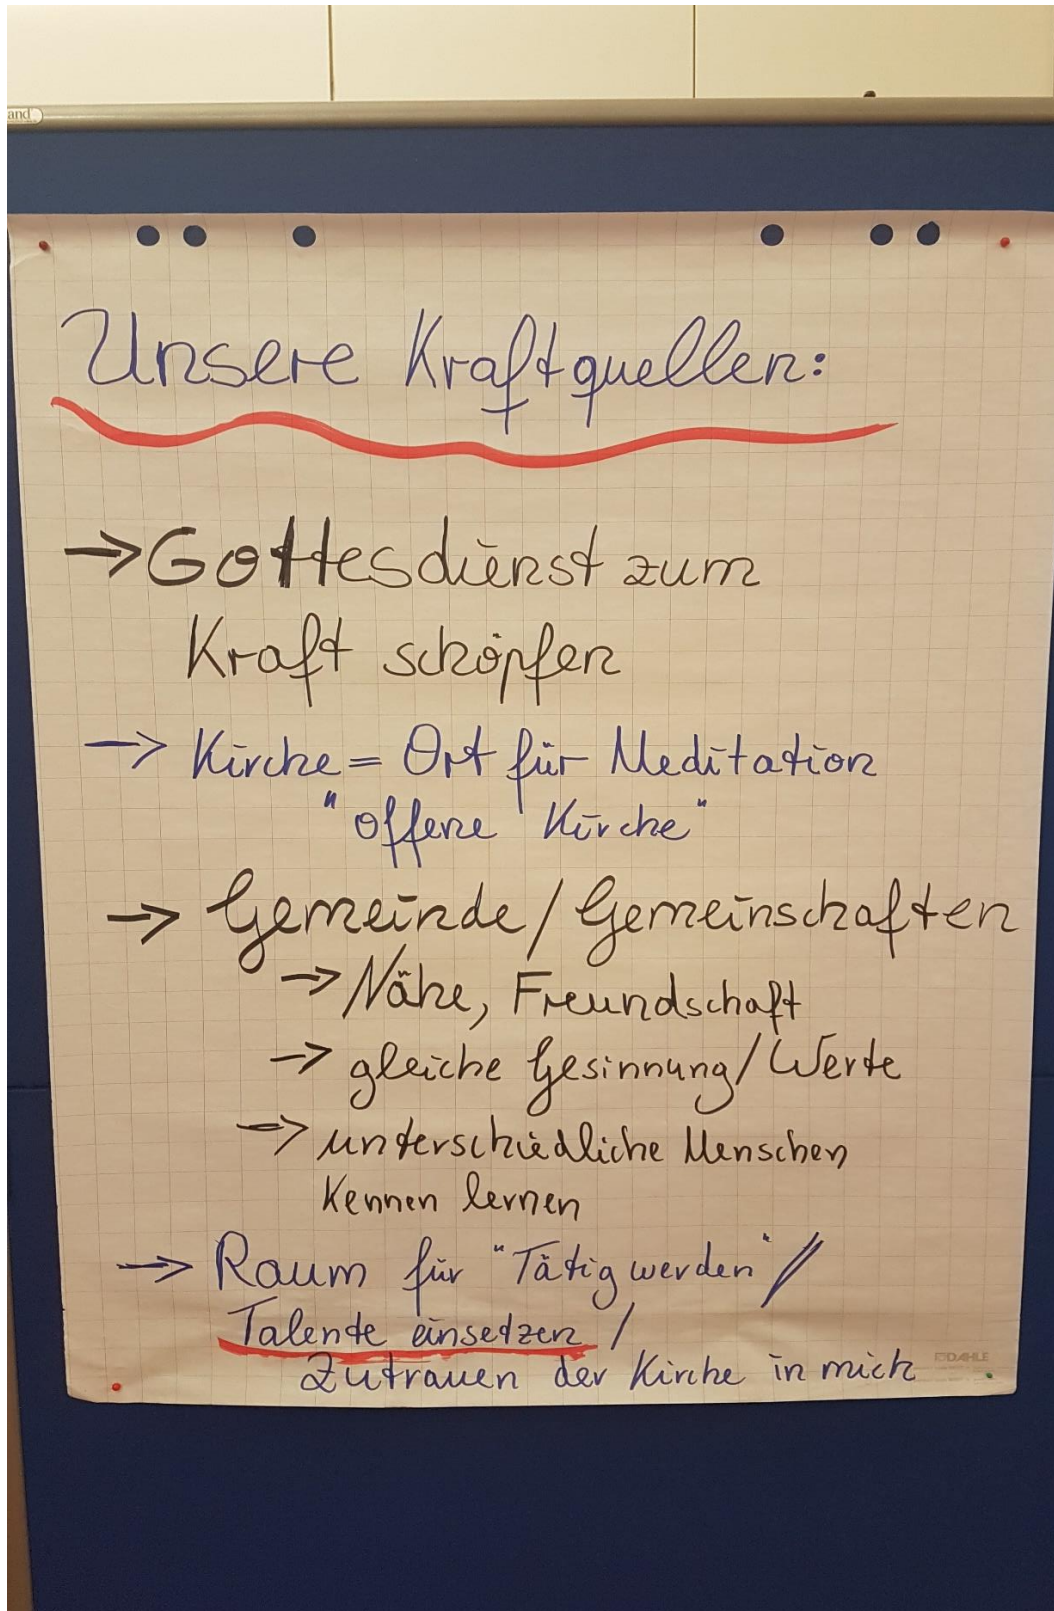 and
Unsere Kraftquellen:
→ Gottesdienst zum
Kraft schöpfen
→ Kirche = Ort für Meditation
"offene Kirche"
→ Gemeinde / Gemeinschaften
→ Nähe, Freundschaft
→ gleiche Gesinnung / Werte
→ unterschiedliche Menschen
Kennen lernen
→ Raum für "Tätig werden" //
Talente einsetzen /
Zutrauen der Kirche in mich
DAHLE